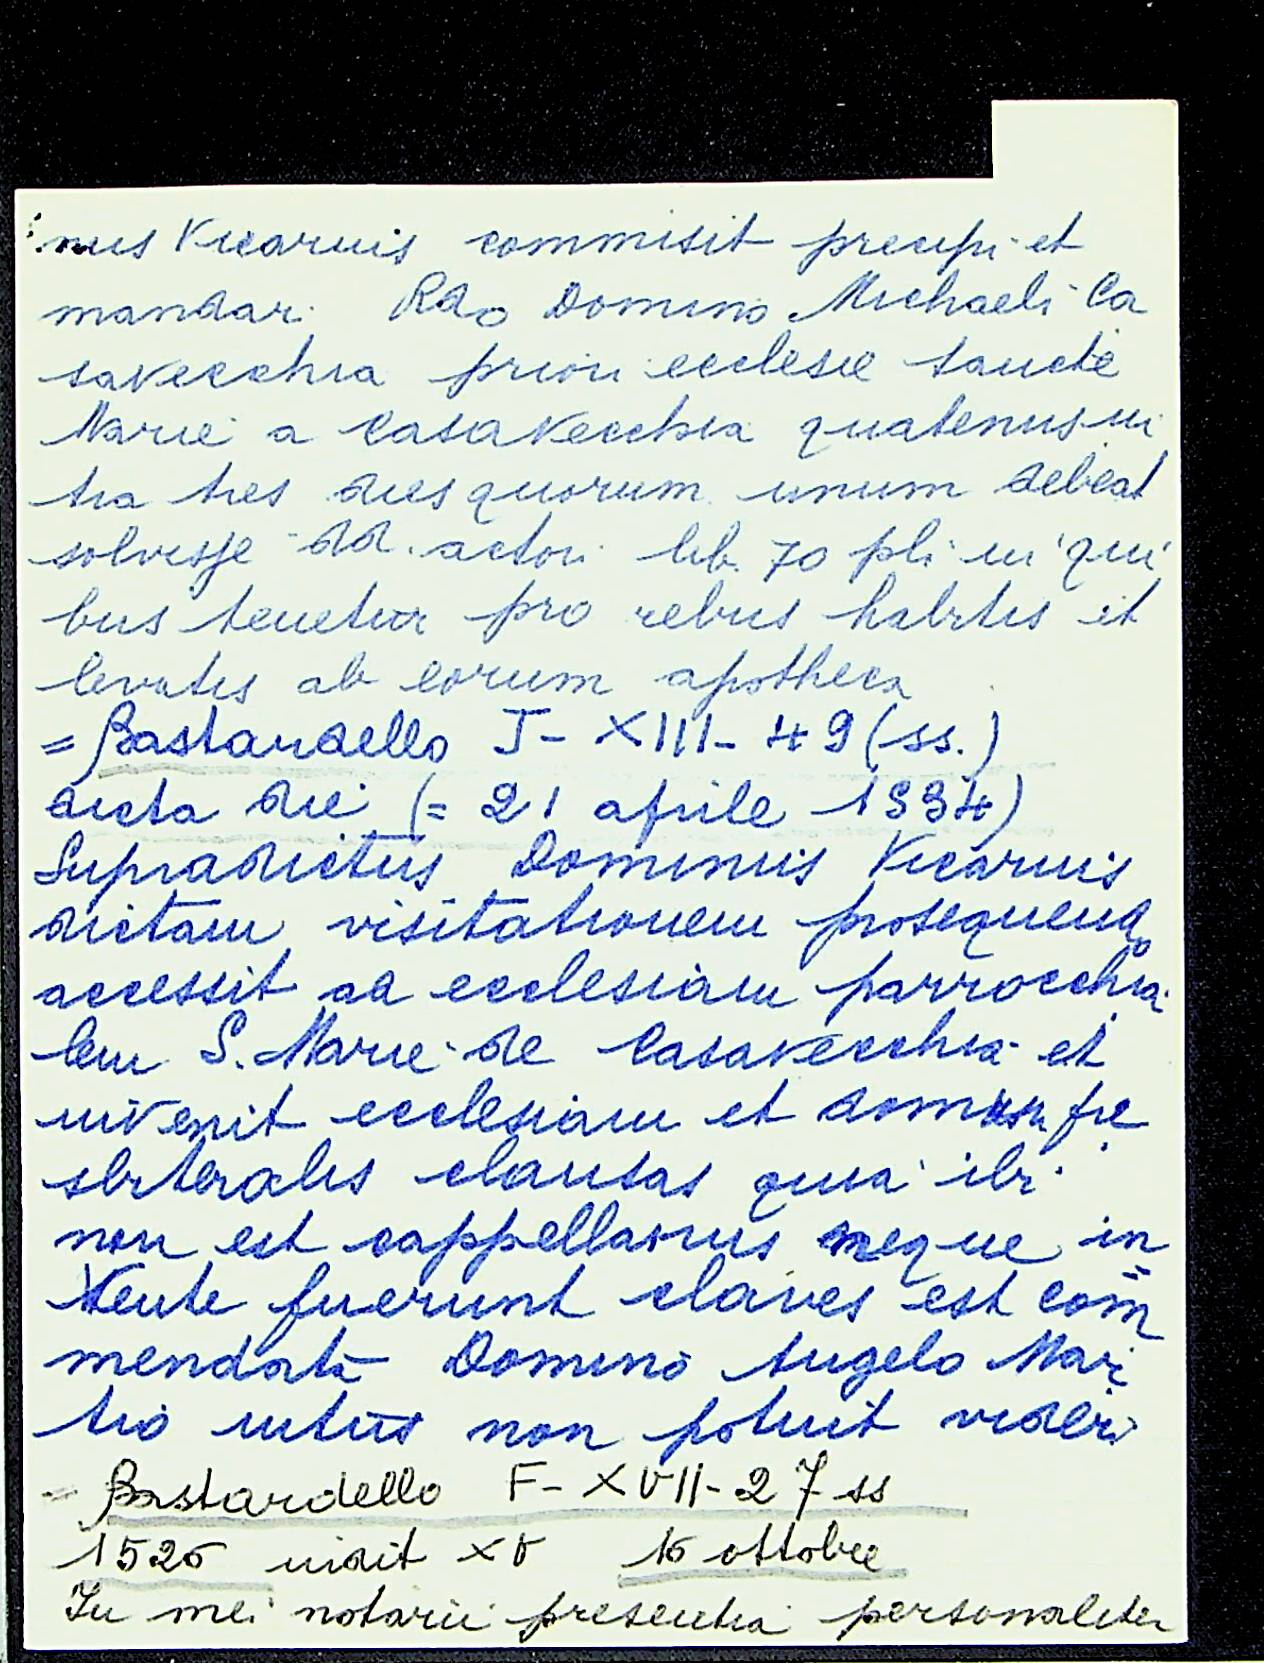 nus Vicarius commisit precipi et
mandar. Rdo Domino Michaeli Ca
savecchia priori ecclesie sancte
Marie a Casavecchia quatenus in
tra tres dies quorum unum debeat
solvisse dd. actori lib. 70 pli in qui
bus tenetur pro rebus habitis et
levatis ab eorum apotheca
= Bastardello J - XIII - 49 (ss.)
dicta die (= 21 aprile 1534)
Supradictus Dominus Vicarius
dictam visitationem prosequendo
accessit ad ecclesiam parrocchia
lem S. Marie de Casavecchia et
invenit ecclesiam et domum pre
sbiteralis clausas quia ibi
non est cappellanus neque in
vente fuerunt claves est com
mendata Domino Angelo Mar
tio intus non potuit videri
= Bastardello F - XVII - 27 ss
1526 indit XV 16 ottobre
In mei notarii presentia personaliter